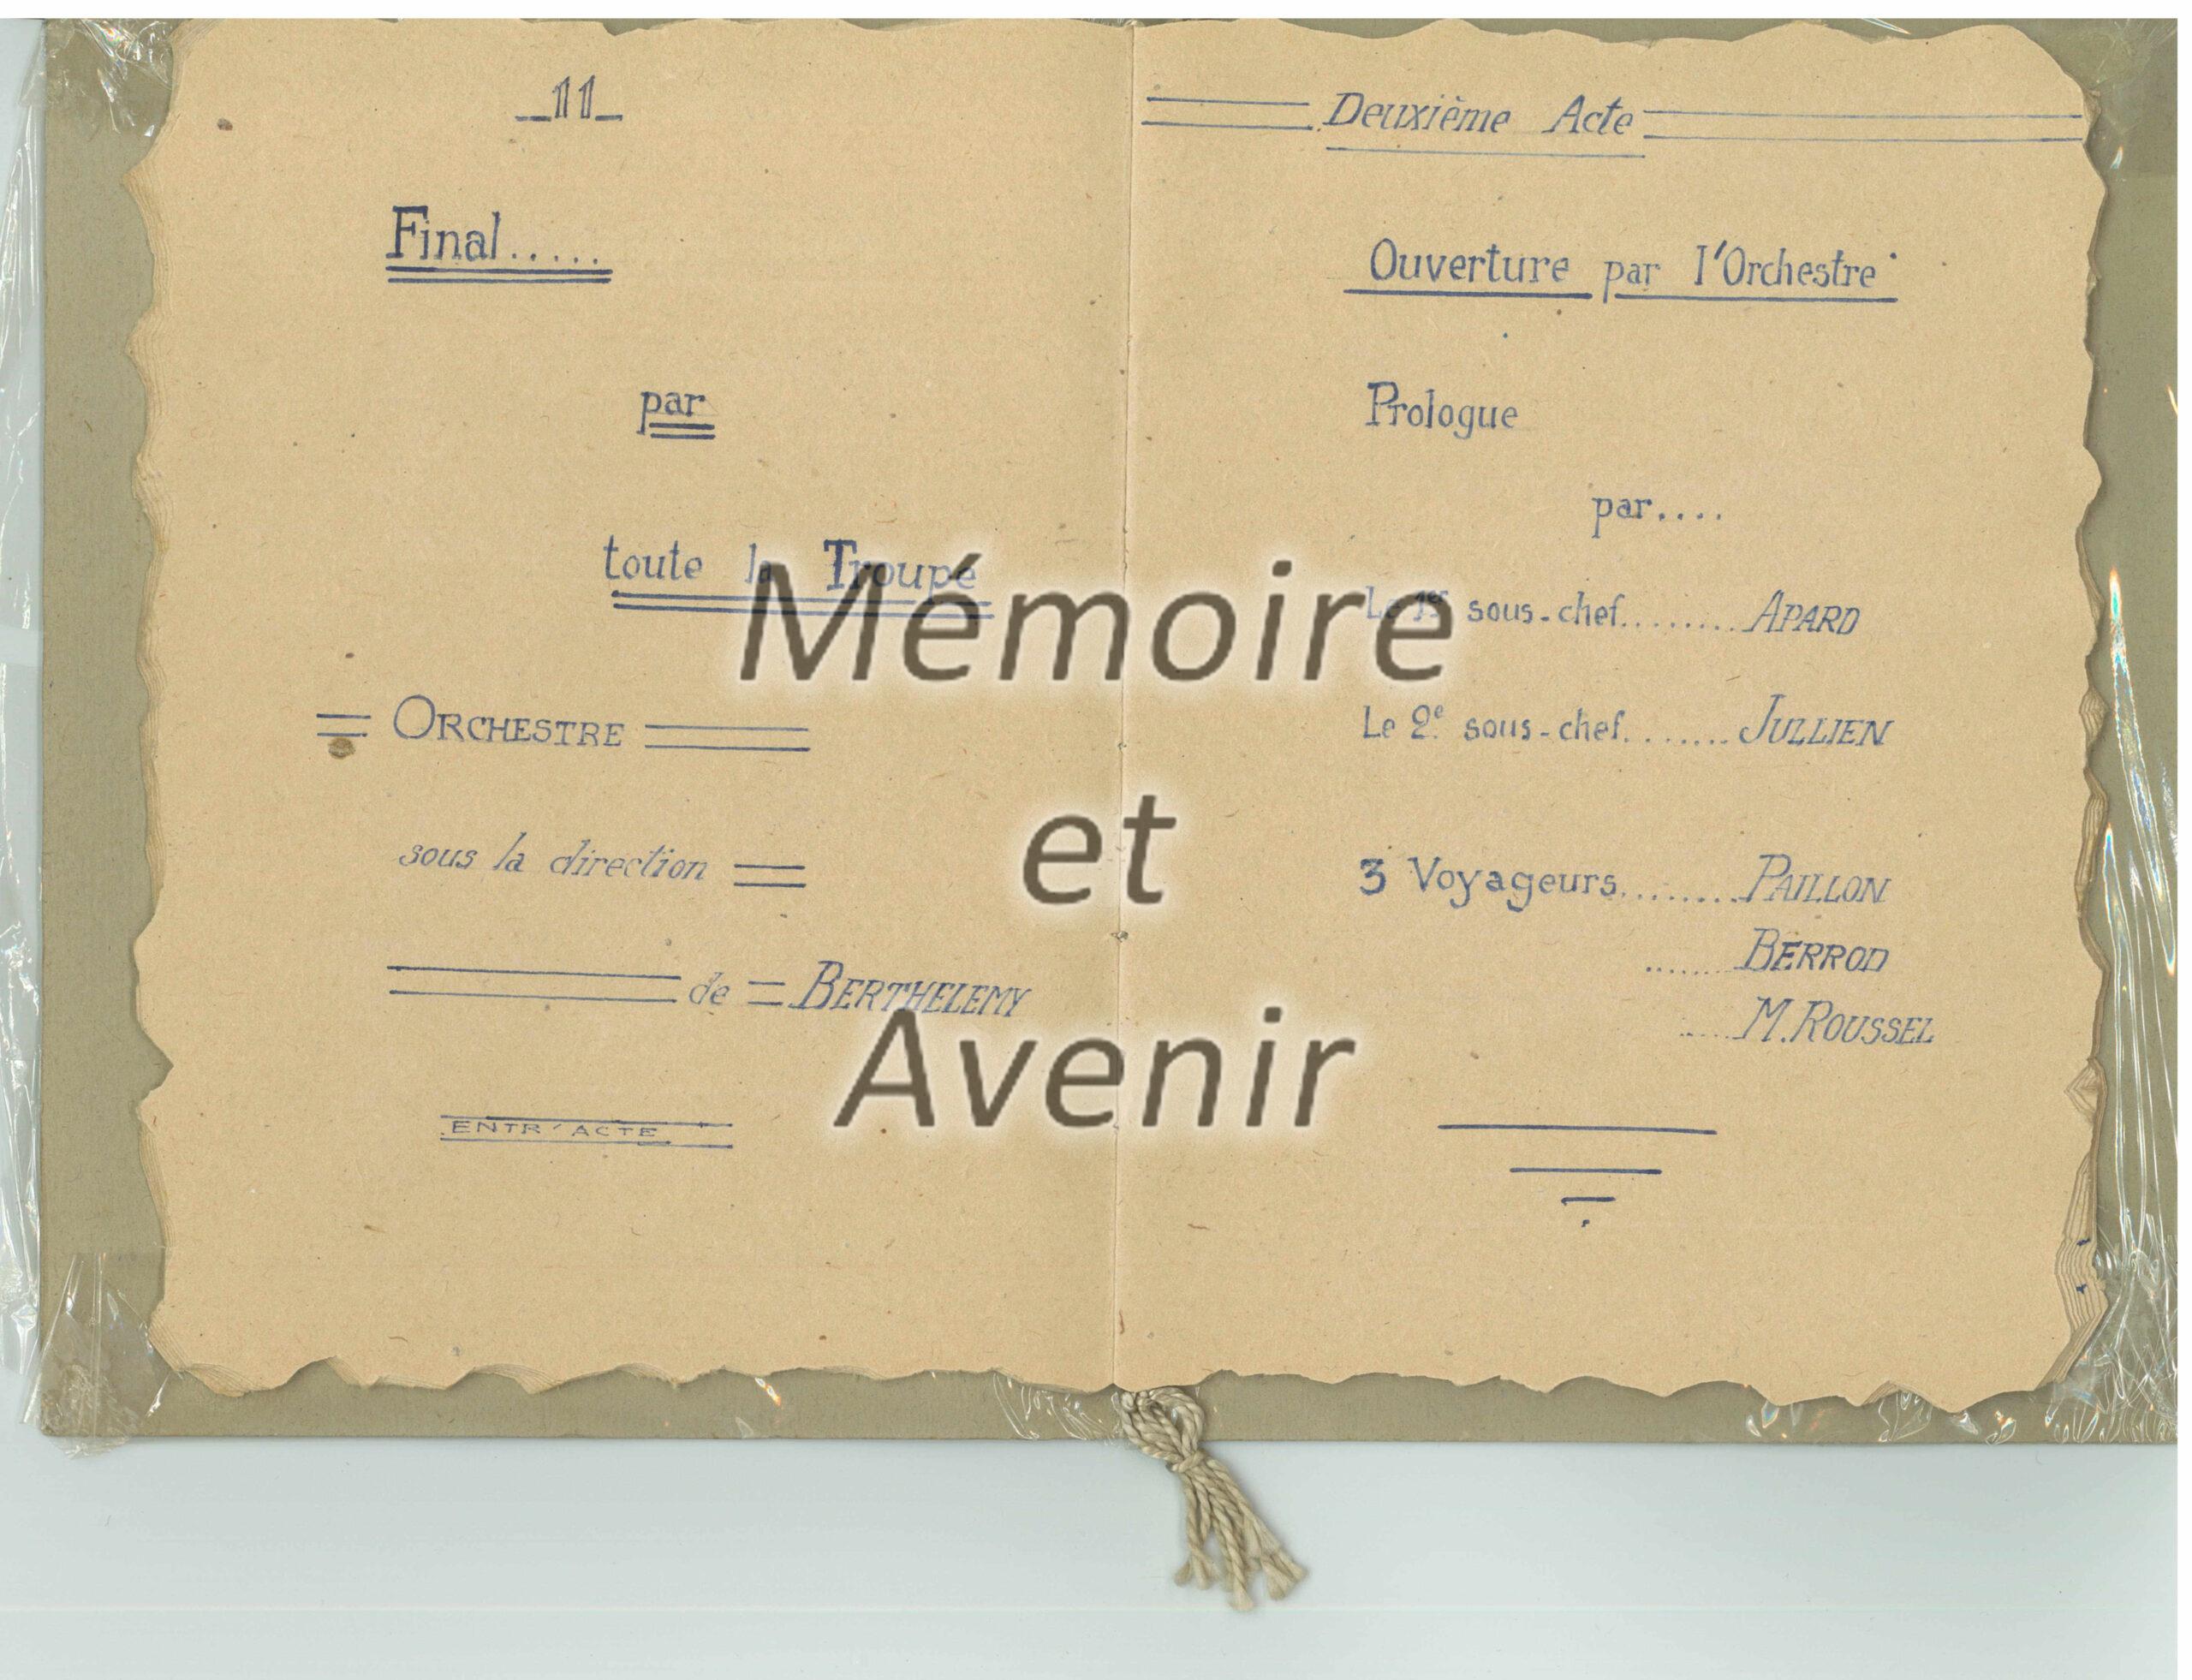 _11_
Final.....
par
toute la Troupe
ORCHESTRE
sous la direction
de BERTHELEMY
ENTR'ACTE
Deuxième Acte
Ouverture par l'Orchestre
Prologue
par....
Le 1er sous-chef........APARD
Le 2e sous-chef.......JULLIEN
3 Voyageurs........PAILLON
.......BERROD
.....M.ROUSSEL
Mémoire
et
Avenir